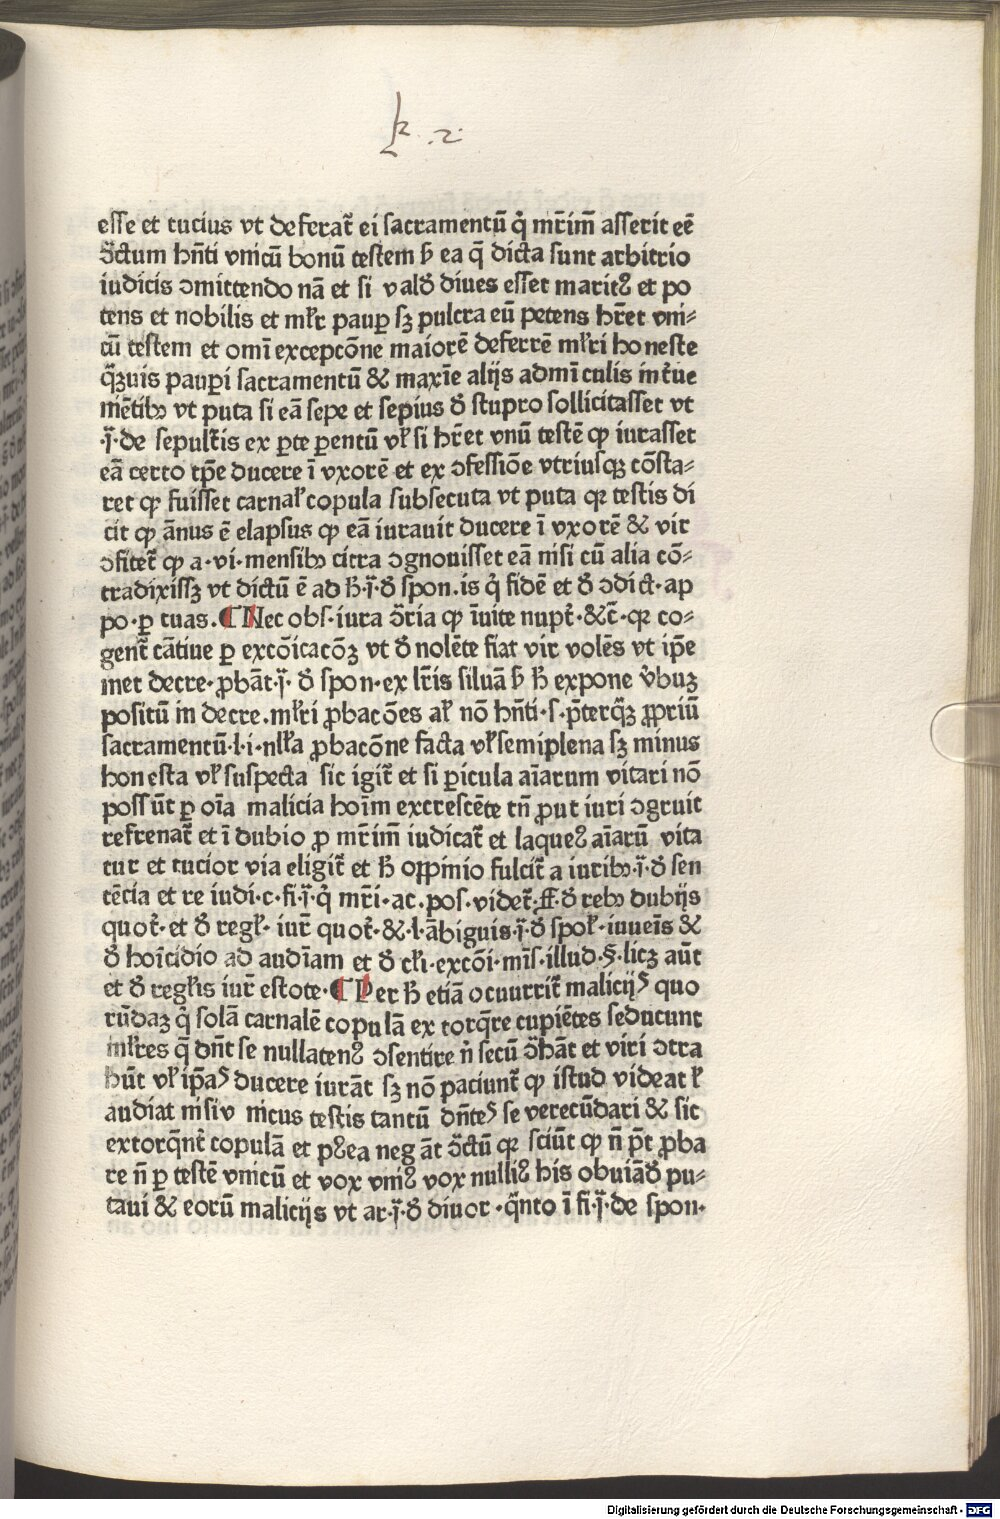 k .2.
esse et tucius vt deferat᷑ ei sacramentū q̇ mr̄im̄ asserit eē
ↄ̄ctum hn̄ti vnicū bonū testem ƀ ea q̄ dicta sunt arbitrio
iudicis ↄmittendo nā et si valđ diues esset maritꝰ et po
tens et nobilis et młr paup̲ sꝫ pulcra eū petens hr̄et vni⸗
cū testem et omī excepcōne maiorē deferrē młri honeste
q̄ꝫuis paup̲i sacramentū & maxīe alijs admīculis int̓ue
mētibꝫ vt puta si eā sepe et sepius đ stupro sollicitasset vt
·j̄·de sepult̓is ex p̲te p̲entū vł si hr̄et vnū testē ꝙ iurasset
eā certo tp̄e ducere ī vxorē et ex ↄfessiōe vtriusqꝫ cōsta⸗
ret ꝙ fuisset carnał copula subsecuta vt puta qꝛ testis di
cit ꝙ ānus ē elapsus ꝙ eā iurauit ducere ī vxorē & vir
ↄfitet᷑ ꝙ a·vi·mensibꝫ citra ↄgnouisset eā nisi cū alia cō⸗
tradixissꝫ vt dictū ē ad ħ·j̄·đ spon.is q̇ fidē et đ ↄdict·ap
po·p̲ tuas.¶ Nec obs·iura ↄ̄ria ꝙ īuite nupt̓·&c̄·qꝛ co⸗
gent᷑ cātiue p̲ excōicacōꝫ vt đ nolēte fiat vir volēs vt ip̄e
met decre·ꝓbāt·j̄· đ spon·ex lr̄is siluā ƀ ħ expone v̓buꝫ
positū in decre.młri ꝓbacōes ał nō hn̄ti·s·p̄terq̄ꝫ ꝓpriū
sacramentū·l·i·nłła ꝓbacōne facta vł semiplena sꝫ minus
honesta vł suspecta sic igit᷑ et si p̲icula aīarum vitari nō
possūt p̲ oīa malicia hoīm excrescēte tn̄ ꝓut iuri ↄgruit
refrenat᷑ et ī dubio ꝓ mr̄im̄ iudicat᷑ et laqueꝰ aīarū vita
tur et tucior via eligit᷑ et ħ oppinio fulcit᷑ a iuribꝫ·j̄·đ sen
tēcia et re iudi·c·fi·j̄·q̇ mr̄i·ac·pos·videt᷑·ff·đ rebꝫ dubijs
quot̓·et đ regł· iur̓ quot̓·&·l·ābiguis·j̄·đ społ·iuueīs &
đ hoīcidio ad audīam et đ cłi·excōi·mīs·illud·§·licꝫ aūt
et đ regłis iur̓ estote·¶ Per ħ etiā ocuurrit᷑ malicijꝰ quo
rūdaꝫ q̇ solā carnalē copulā ex torq̄re cupiētes seducunt
młres q̄ dn̄t se nullatenꝰ ↄsentire n̄ secū ↄ̄hāt et viri ↄtra
hūt vł ip̄aꝰ ducere iurāt sꝫ nō paciunt᷑ ꝙ istud videat ł
audiat nisi v nicus testis tantū dn̄teꝰ se verecūdari & sic
extorq̄nt᷑ copulā et pꝰea neg āt ↄ̄ctū qꝛ sciūt ꝙ n̄ p̄t ꝓba
re n̄ p̲ testē vnicū et vox vniꝰ vox nulliꝰ his obuiāđ pu⸗
taui & eorū malicijs vt ar·j̄·đ diuor·q̄nto ī fi·j̄·de spon·
Digitalisierung gefördert durch die Deutsche Forschungsgemeinschaft - DFG